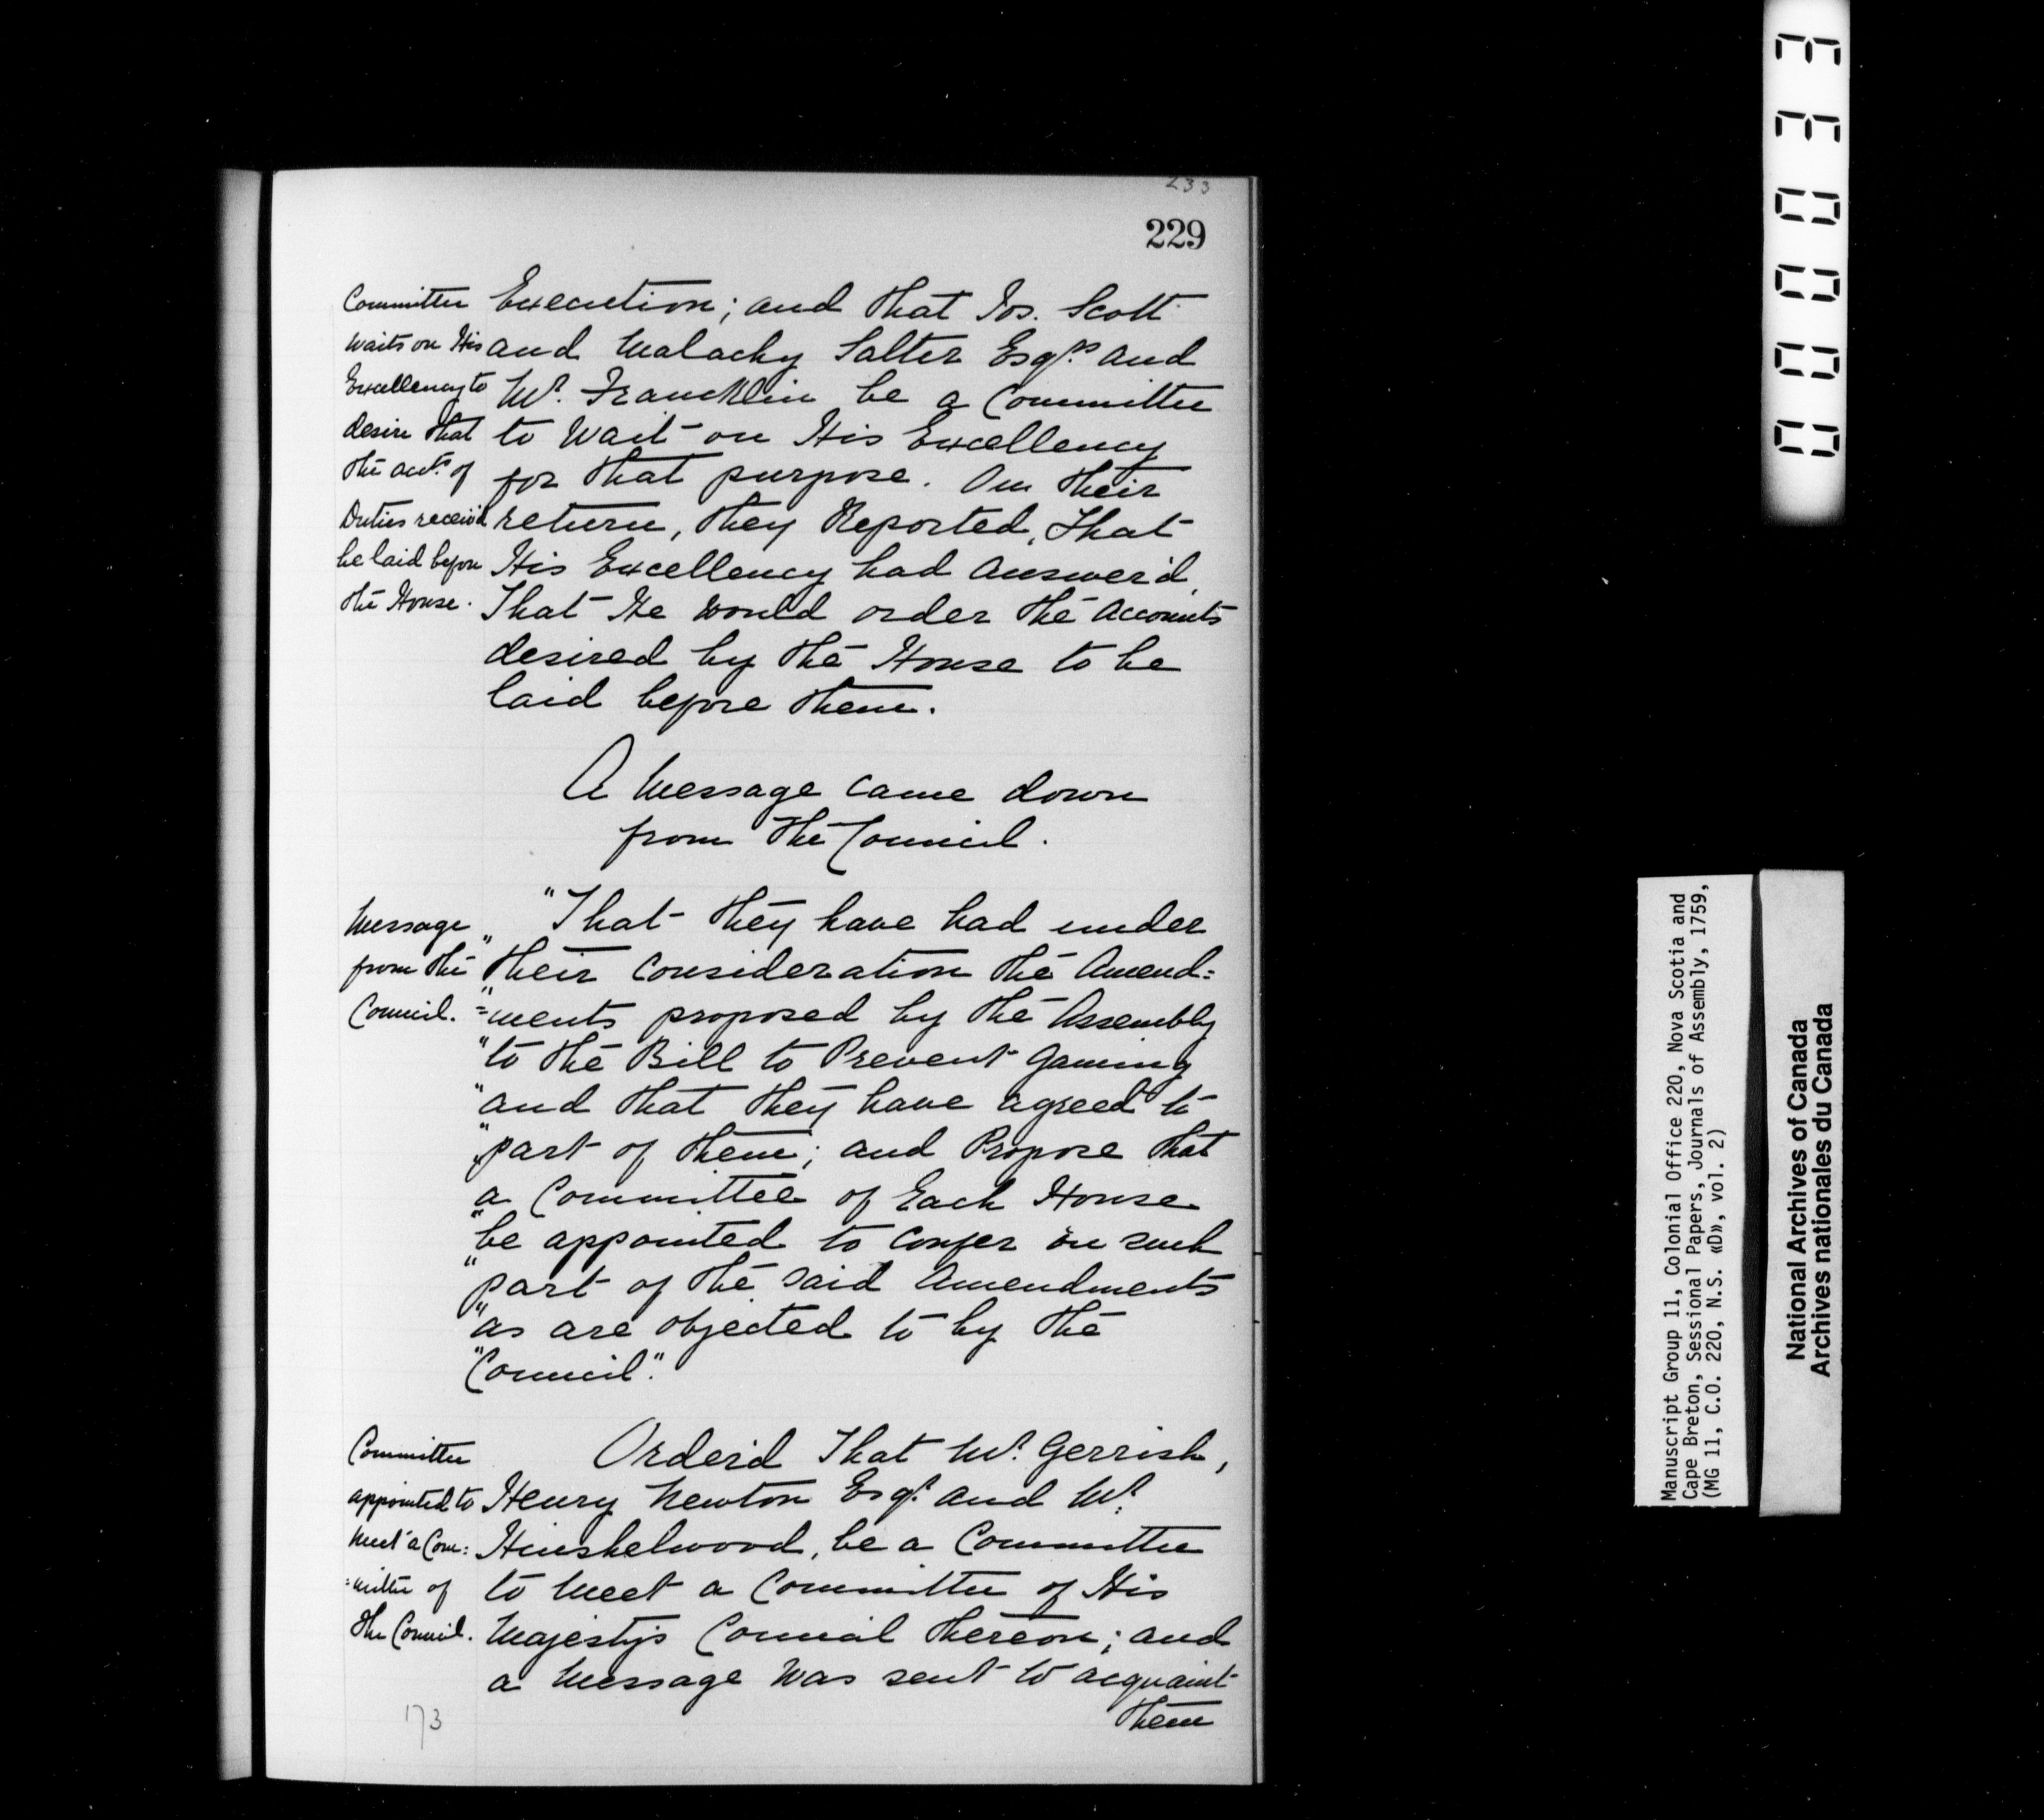 233
229
Committee
waits on His
Excellency to
desire that
the acct.s of
Duties receiv'd
be laid before
the House.
Execution; and that Jos. Scott
and Malachy Salter Esq.rs and
Mr. Francklin be a Committee
to Wait on His Excellency
for that purpose. On their
return, they Reported, That
His Excellency had answer'd,
That He would order the Accounts
desired by the House to be
laid before them.
A Message came down
from the Council.
Message
from the
Council.
"That they have had under
"their consideration the Amend=
"=ments proposed by the Assembly
"to the Bill to Prevent Gaming
"and that they have agreed to
"part of them; and Propose that
"a Committee of Each House
"be appointed to confer on such
"part of the said Amendments
"as are objected to by the
"Council."
Committee
appointed to
meet a Com:
=mittee of
the Council.
Order'd That Mr. Gerrish,
Henry Newton Esqr. and Mr.
Hinshelwood, be a Committee
to meet a Committee of His
Majesty's Council thereon; and
a Message was sent to acquaint
them
173
Manuscript Group 11, Colonial Office 220, Nova Scotia and
Cape Breton, Sessional Papers, Journals of Assembly, 1759,
(MG 11, C.O. 220, N.S. «D», vol. 2)
National Archives of Canada
Archives nationales du Canada